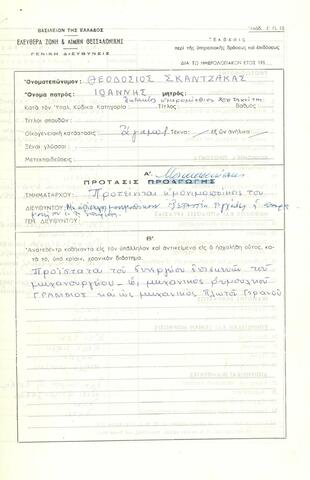 ΒΑΣΙΛΕΙΟΝ ΤΗΣ ΕΛΛΑΔΟΣ
ΕΛΕΥΘΕΡΑ ΖΩΝΗ & ΛΙΜΗΝ ΘΕΣΣΑΛΟΝΙΚΗΣ
ΓΕΝΙΚΗ ΔΙΕΥΘΥΝΣΙΣ
Ἔκθεσις
περί τῆς ὑπηρεσιακῆς δράσεως καί ἐπιδόσεως
ΔΙΑ ΤΟ ΗΜΕΡΟΛΟΓΙΑΚΟΝ ΕΤΟΣ 195
Ὀνοματεπώνυμον: ΘΕΟΔΟΣΙΟΣ ΣΚΑΝΤΖΑΚΑΣ
Ὄνομα πατρός: ΙΩΑΝΝΗΣ μητρός:
Κατά τόν Ὑπαλ. Κώδικα Κατηγορία Τίτλος Βαθμός
Τίτλοι σπουδῶν:
Οἰκογενειακή κατάστασις: Ἄγαμος Τέκνα: ἐξ ὧν ἀνήλικα
Ξέναι γλῶσσαι:
Μετεκπαιδεύσεις:
Α'.
ΠΡΟΤΑΣΙΣ ΠΡΟΑΓΩΓΗΣ
ΤΜΗΜΑΤΑΡΧΟΥ: Προτείνεται ἡ μονιμοποίησις του
ΔΙΕΥΘΥΝΤΟΥ:
ΓΕΝ. ΔΙΕΥΘΥΝΤΟΥ:
Β'
Ἀνατεθέντα καθήκοντα εἰς τόν ὑπάλληλον καί ἀντικείμενα εἰς ἅ ἠσχολήθη οὗτος, κατά τό, ὑπό κρίσιν, χρονικόν διάστημα.
Προΐσταται τοῦ συνεργείου ἐπισκευῶν τοῦ
μηχανουργείου ὡς μηχανικός ρυμουλκοῦ
ΓΡΑΜΜΟΣ καί ὡς μηχανικός Πλωτοῦ Γερανοῦ